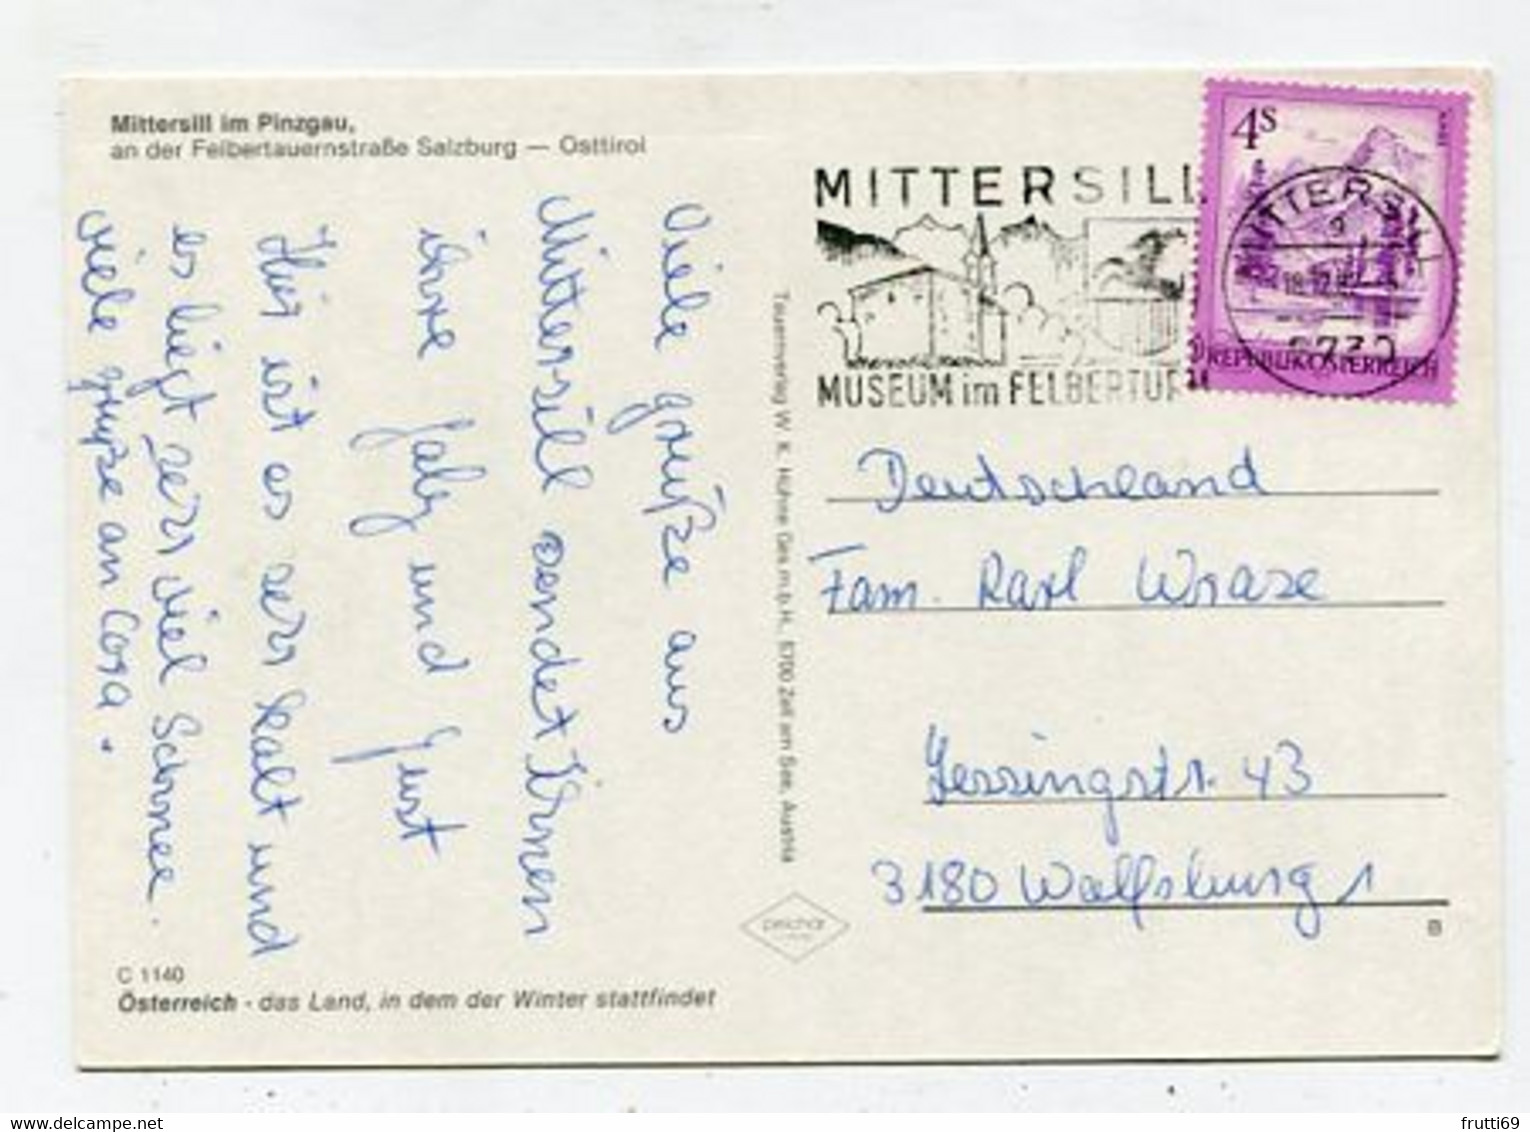 Mittersill im Pinzgau,
an der Felbertauernstraße Salzburg — Osttirol
Viele grüße aus
Mittersill sendet Ihnen
ihre Gaby und Gust
Hier ist es serr kalt und
es liegt serr viel Schnee.
viele grüße an Cora.
C 1140
Österreich - das Land, in dem der Winter stattfindet
Tauernverlag W. K. Höhne Ges.m.b.H., 5700 Zell am See, Austria
MITTERSILL
MUSEUM im FELBERTUR
4S
REPUBLIK ÖSTERREICH
MITTERSILL
5730
Deutschland
Fam. Karl Wraze
Lessingstr. 43
3180 Wolfsburg 1
B
delcampe.net
frutti69